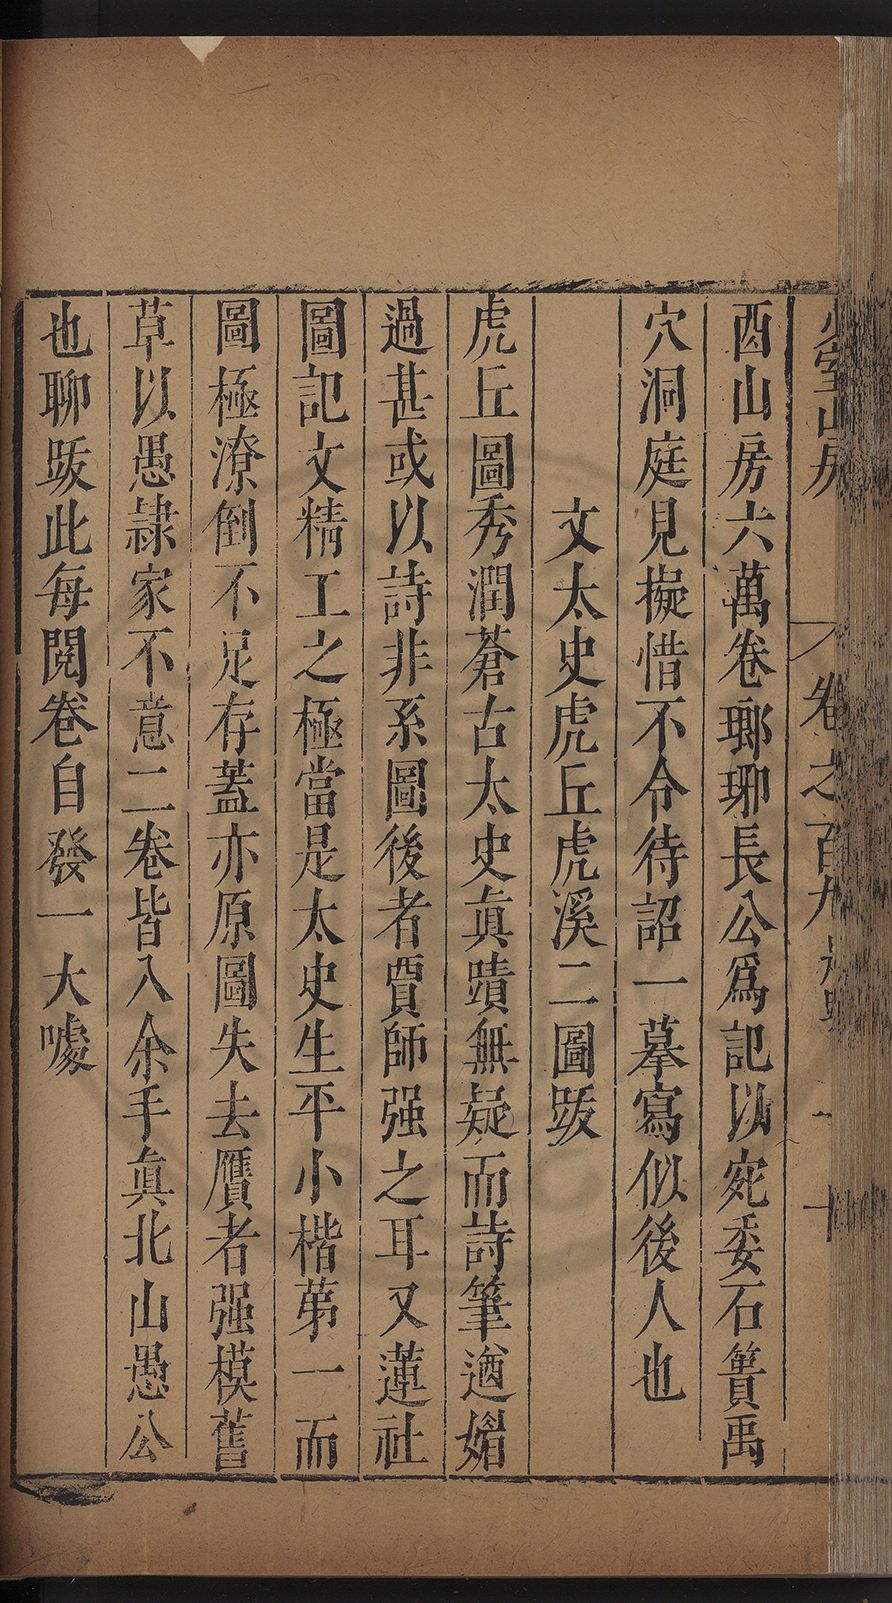 少室山房 卷之百九 題跋 十
酉山房六萬卷瑯琊長公爲記以宛委石簣禹
穴洞庭見擬惜不令待詔一摹寫似後人也
文太史虎丘虎溪二圖跋
虎丘圖秀潤蒼古太史眞蹟無疑而詩筆遒媚
過甚或以詩非系圖後者賈師强之耳又蓮社
圖記文精工之極當是太史生平小楷第一而
圖極潦倒不足存蓋亦原圖失去贋者强模舊
草以愚隷家不意二卷皆入余手眞北山愚公
也聊跋此每閱卷自發一大噱